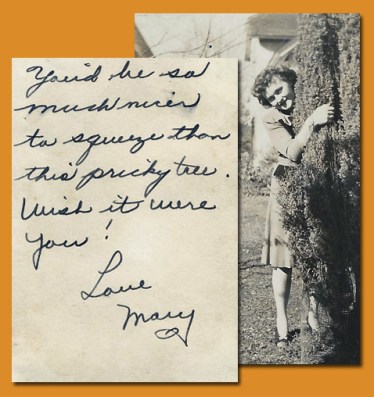 You'd be so
much nicer
to squeeze than
this pricky tree.
Wish it were
you!
Love
Mary